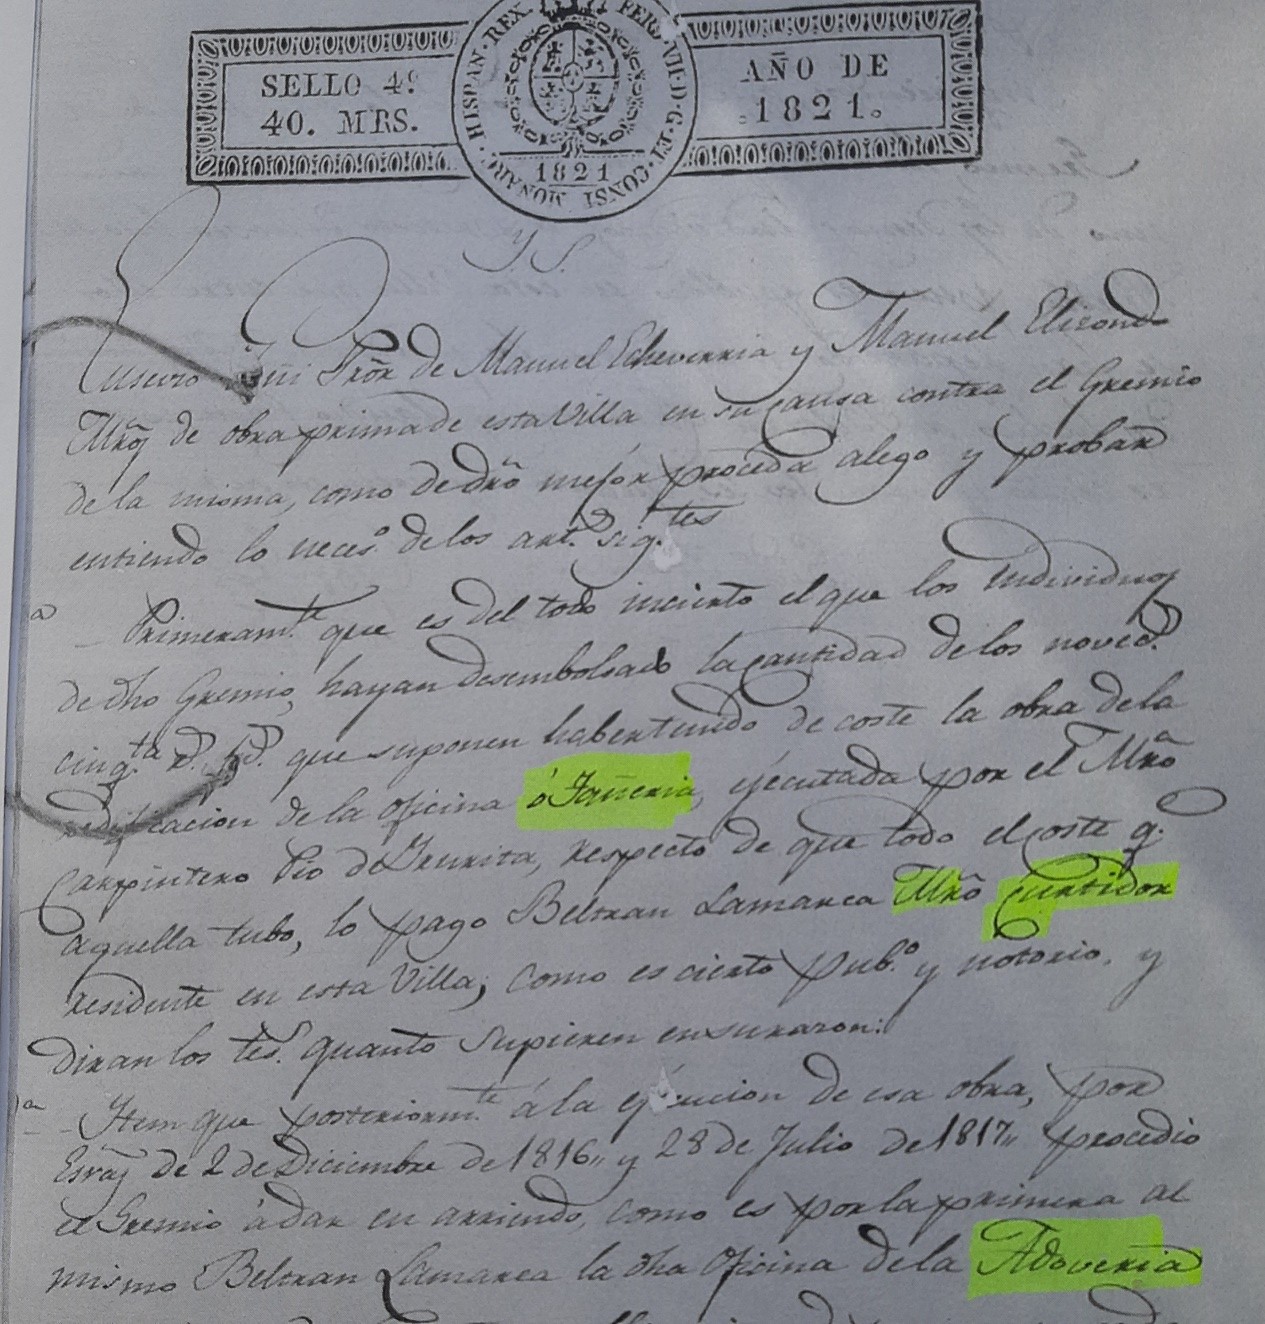 SELLO 4º
40. MRS.
HISPAN. REX. FERD. VII. D. G. ET. CONST. MONARC.
1821
AÑO DE
1821.
Y. S.
Eusevio Goñi Prõr de Manuel Echeverria y Manuel Elizondo
Mrõs de obra prima de esta Villa en su causa contra el Gremio
de la misma, como de dr̃õ mejor proceda alego y probar
entiendo lo neces.º de los art.s sig.tes
a Primeram.te que es del todo incierto el que los individuos
de dho Gremio, hayan desembolsado la cantidad de los noveci.s
cinq.ta r.s f.s que suponen haber tenido de coste la obra de la
redificacion de la oficina ó Tañeria, ejecutada por el Mrõ
Carpintero Pio de Grurita, respecto de que todo el coste q.e
aquella tubo, lo pago Beltran Lamarca Mrõ curtidor
residente en esta Villa; como es cierto pub.º y notorio, y
diran los tes.s quanto supieren en su razon:
a Item que posteriorm.te á la ejecucion de esa obra, por
Esras de 2 de Diciembre de 1816,, y 28 de Julio de 1817,, procedio
el Gremio á dar en arriendo, como es por la primera al
mismo Beltran Lamarca la dha Oficina de la Adoveria